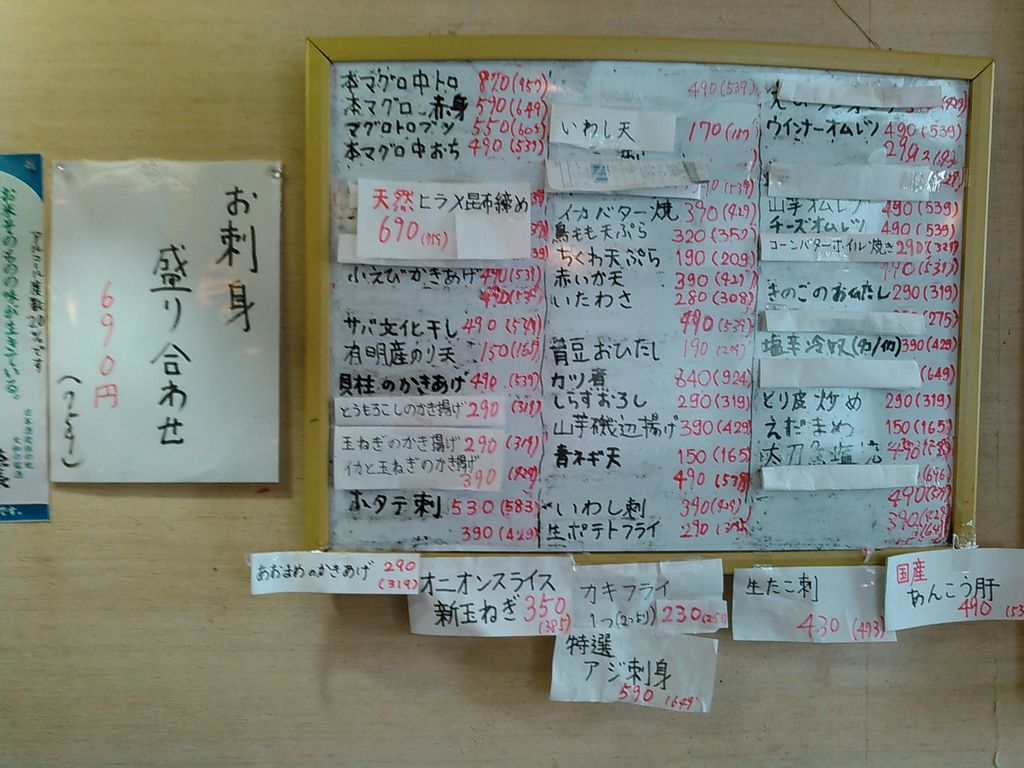 お米そのものの味が生きている。
アルコール度数20%です
です。
お刺身
盛り合わせ
690円
本マグロ中トロ 870(957)
本マグロ 赤身 590(649)
マグロトロブツ 550(605)
本マグロ中おち 490(539)
天然ヒラメ昆布締め
690(759)
小えびかきあげ 490(539)
490(539)
サバ文化干し 490(539)
有明産のり天 150(165)
貝柱のかきあげ 490(539)
とうもろこしのかき揚げ 290(319)
玉ねぎのかき揚げ 290(319)
イカと玉ねぎのかき揚げ
390(429)
ホタテ刺 530(583)
390(429)
490(539)
いわし天 170(187)
イカバター焼 390(429)
鳥もも天ぷら 320(352)
ちくわ天ぷら 190(209)
赤いか天 390(429)
いたわさ 280(308)
490(539)
青豆おひたし 190(209)
カツ煮 840(924)
しらすおろし 290(319)
山芋磯辺揚げ 390(429)
青ネギ天 150(165)
490(539)
いわし刺 390(429)
生ポテトフライ 290(319)
ウインナーオムレツ 490(539)
山芋オムレツ 490(539)
チーズオムレツ 490(539)
コーンバターホイル焼き 290(319)
きのこのおひたし 290(319)
(275)
塩辛冷奴 390(429)
(649)
とり皮炒め 290(319)
えだまめ 150(165)
490
390
あおまめのかきあげ 290
(319)
オニオンスライス
新玉ねぎ 350
(385)
カキフライ
1つ 230(253)
特選
アジ刺身
590(649)
生たこ刺
430(473)
国産
あんこう肝
490(53